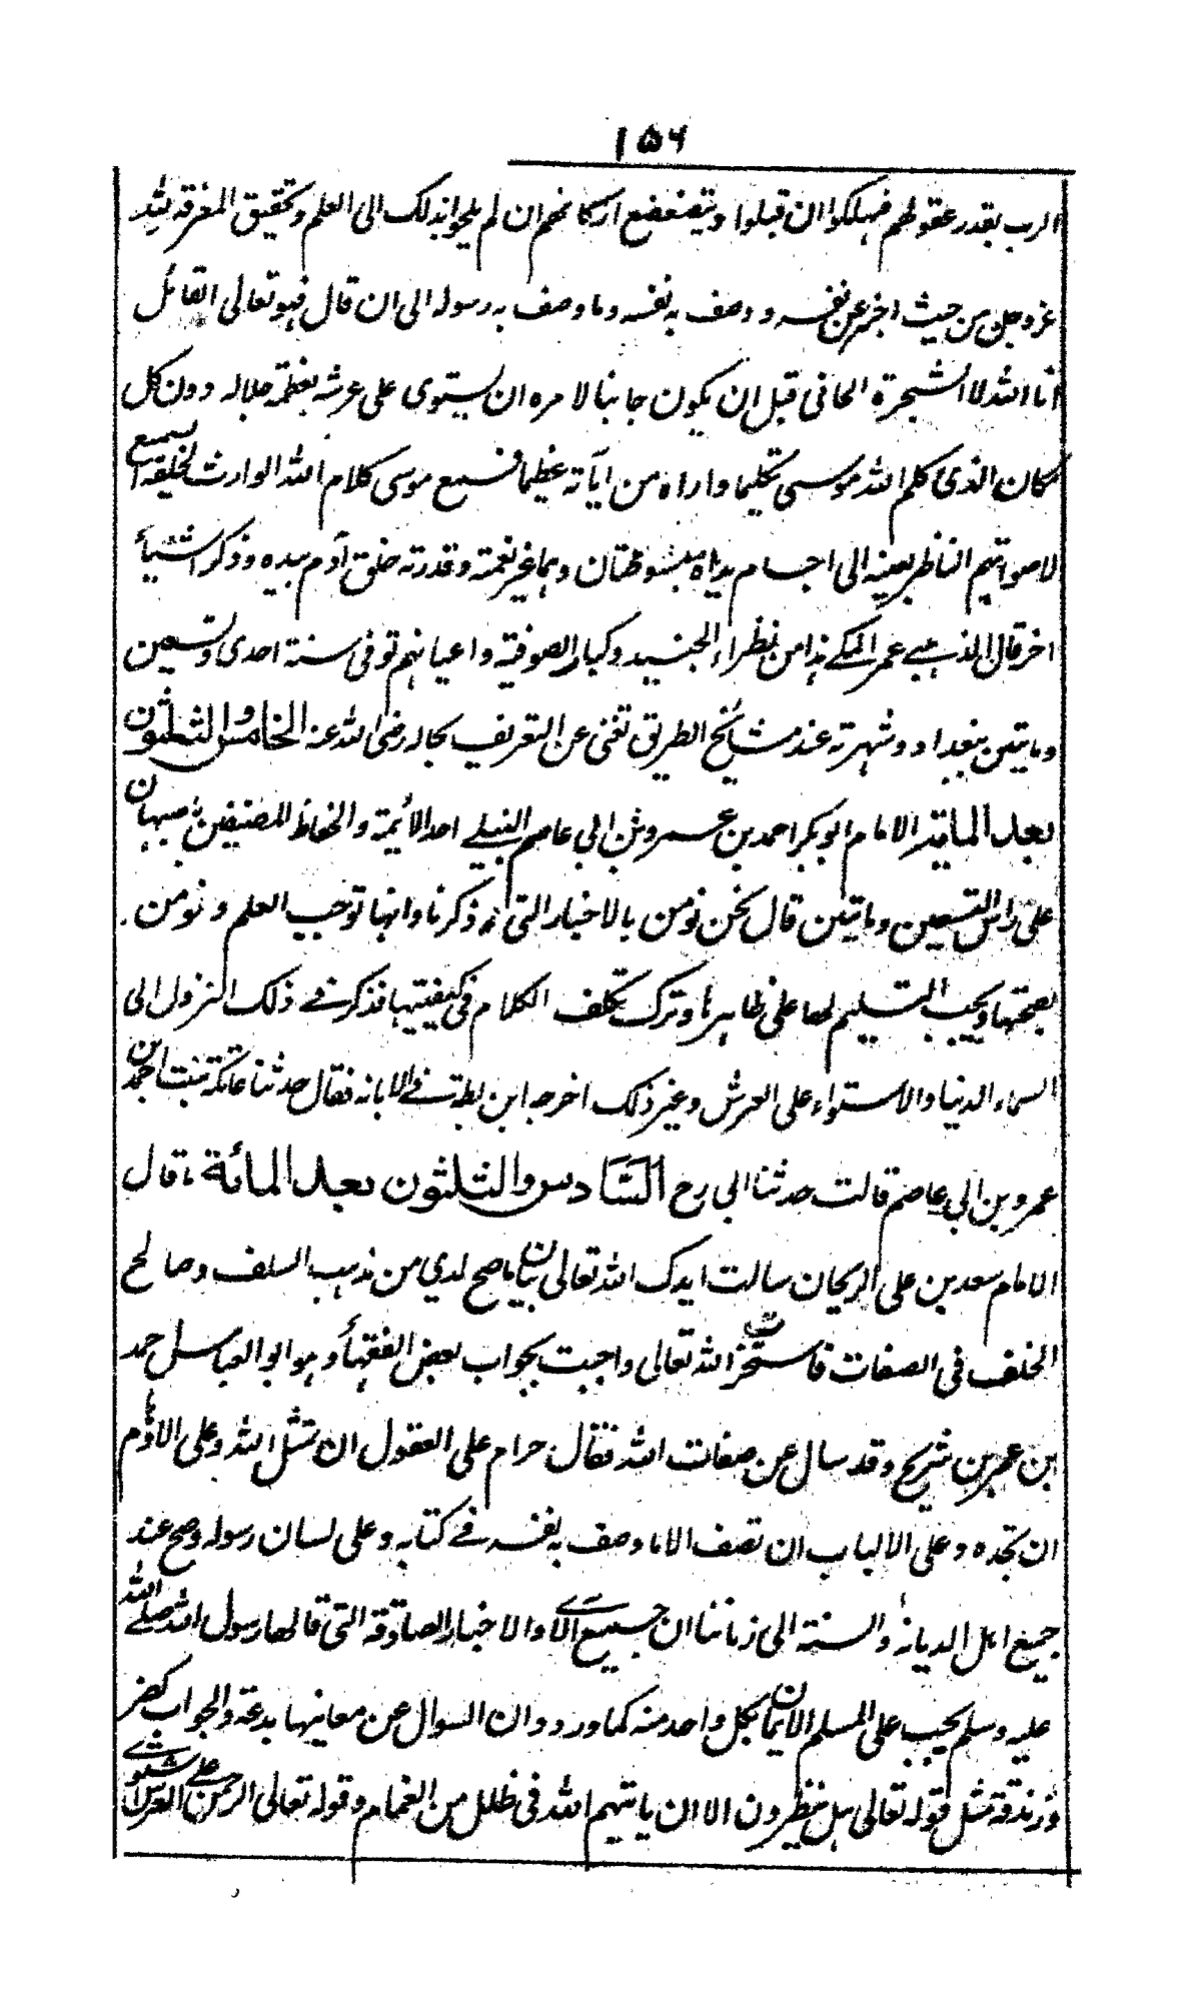 ۱۵۶
الرب بقدر عقولهم فيهلكوا ان قبلوا ويتضعضع اركانهم ان لم يلجوا بذلك الى العلم وتحقيق المعرفة لله
عز وجل من حيث اخبر عن نفسه ووصف به نفسه وما وصف به رسوله الى ان قال فهو تعالى القائل
انا الله لا الشجرة الجائى قبل ان يكون جائيا لا مره ان يستوى على عرشه بعظمة جلاله دون كل
مكان الذى كلم الله موسى تكليما واراه من اياته عظيما فسمع موسى كلام الله الوارث لخلقه السميع
لاصواتهم الناظر بعينه الى اجسامهم يداه مبسوطتان وهما غير نعمته وقدرته خلق آدم بيده وذكر اشياء
اخر قال الذهبي عمر المكي هذا من نظراء الجنيد وكبار الصوفية واعيانهم توفى سنة احدى وتسعين
ومايتين ببغداد وشهرته عند مشائخ الطريق تغنى عن التعريف بحاله رضى الله عنه الخامس والثلثون
بعد المائة الامام ابو بكر احمد بن عمرو بن ابي عاصم النبيل احد الائمة والحفاظ المصنفين باصبهان
على راس التسعين ومايتين قال نحن نومن بالاخبار التى ذكرنا وانها توجب العلم ونومن
بصحتها ويجب التسليم لها على ظاهرها وترك تكلف الكلام فى كيفيتها فذكر في ذلك النزول الى
السماء الدنيا والاستواء على العرش وغير ذلك اخرجه ابن بطة في الابانه فقال حدثنا عاتكة بنت احمد بن
عمرو بن ابي عاصم قالت حدثنا ابي رح السادس والثلثون بعد المائة ، قال
الامام سعد بن على الريحان سالت ايدك الله تعالى بيان ما صح لدي من مذهب السلف وصالح
الخلف فى الصفات فاستخرت الله تعالى واجبت بجواب بعض الفقهاء وهو ابو العباس احمد
بن عمر بن شريح وقد سال عن صفات الله فقال حرام على العقول ان تمثل الله وعلى الاوهام
ان تحده وعلى الالباب ان تصف الا ما وصف به نفسه في كتابه وعلى لسان رسوله وصح عند
جميع اهل الديانة والسنة الى زماننا ان جميع الآى والاخبار الصادقة التى قالها رسول الله صلى الله
عليه وسلم يجب على المسلم الايمان بكل واحد منه كما ورد وان السوال عن معانيها بدعة والجواب كفر
وزندقة مثل قوله تعالى هل ينظرون الا ان ياتيهم الله فى ظلل من الغمام وقوله تعالى الرحمن على العرش استوى